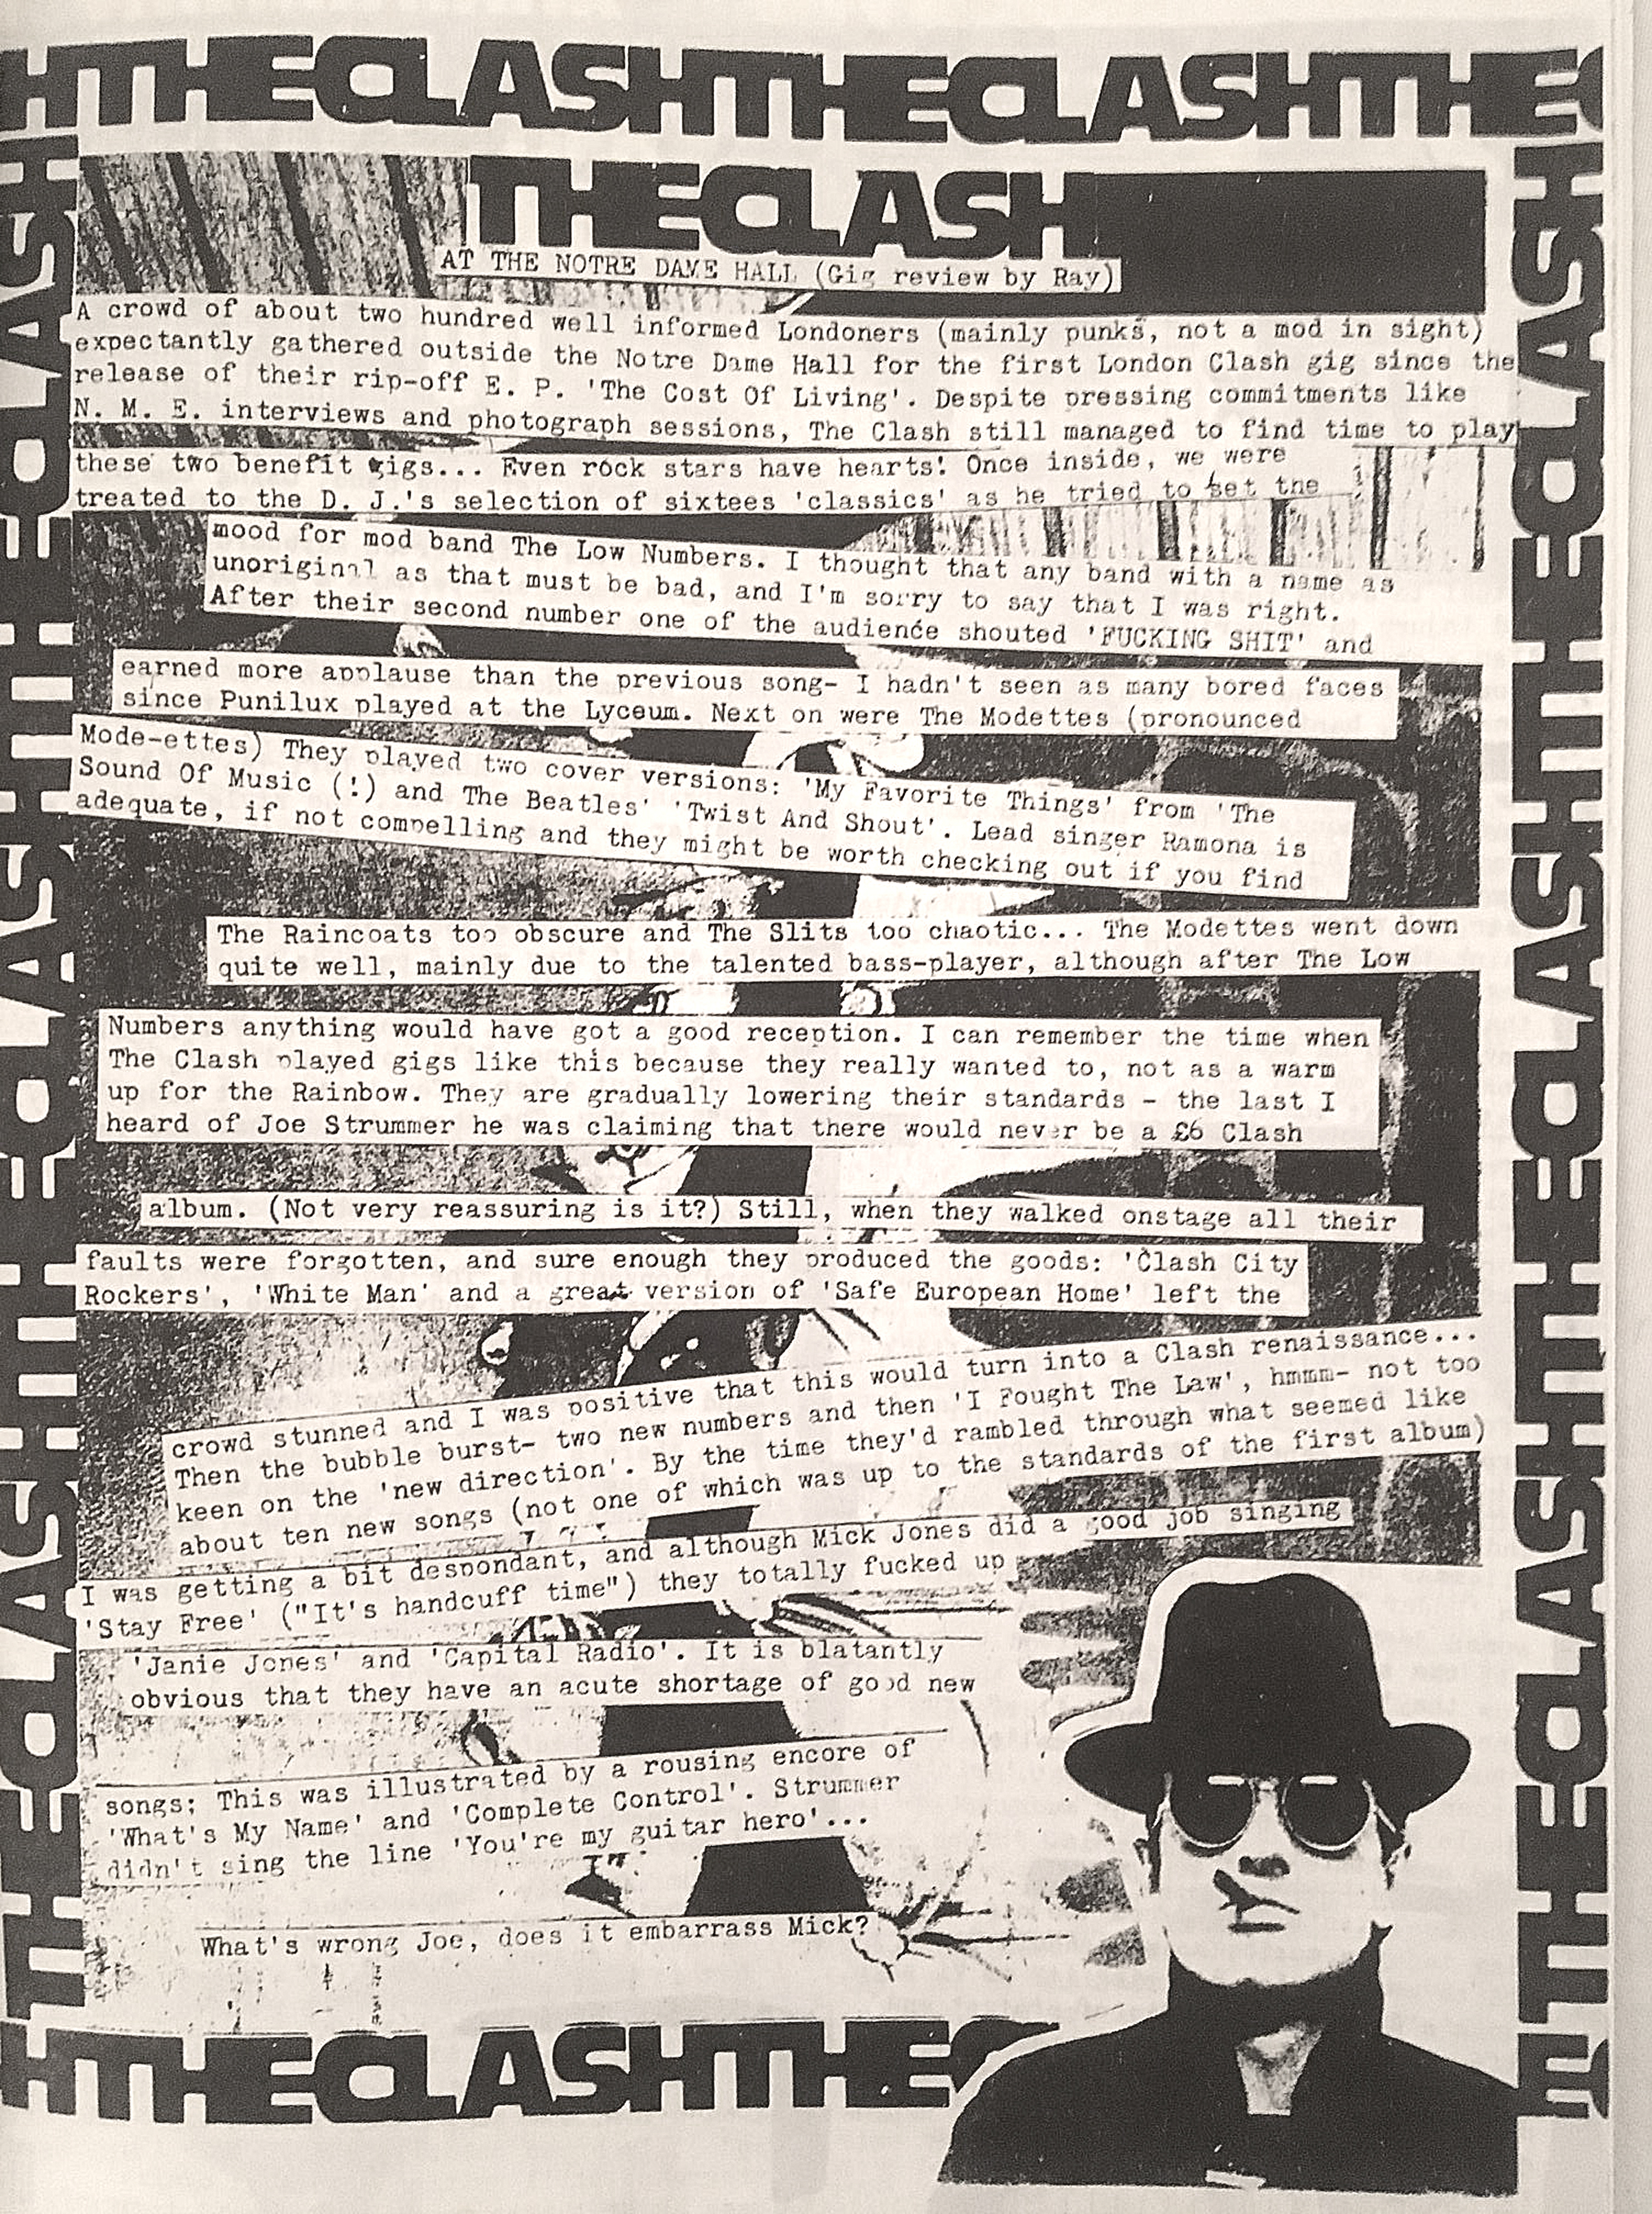 HTHECLASHTHECLASHTHEC
THECLASH
AT THE NOTRE DAME HALL (Gig review by Ray)
A crowd of about two hundred well informed Londoners (mainly punks, not a mod in sight)
expectantly gathered outside the Notre Dame Hall for the first London Clash gig since the
release of their rip-off E. P. 'The Cost Of Living'. Despite pressing commitments like
N. M. E. interviews and photograph sessions, The Clash still managed to find time to play
these two benefit gigs... Even rock stars have hearts! Once inside, we were
treated to the D. J.'s selection of sixtees 'classics' as he tried to set the
mood for mod band The Low Numbers. I thought that any band with a name as
unoriginal as that must be bad, and I'm sorry to say that I was right.
After their second number one of the audience shouted 'FUCKING SHIT' and
earned more applause than the previous song- I hadn't seen as many bored faces
since Punilux played at the Lyceum. Next on were The Modettes (pronounced
Mode-ettes) They played two cover versions: 'My Favorite Things' from 'The
Sound Of Music (!) and The Beatles' 'Twist And Shout'. Lead singer Ramona is
adequate, if not compelling and they might be worth checking out if you find
The Raincoats too obscure and The Slits too chaotic... The Modettes went down
quite well, mainly due to the talented bass-player, although after The Low
Numbers anything would have got a good reception. I can remember the time when
The Clash played gigs like this because they really wanted to, not as a warm
up for the Rainbow. They are gradually lowering their standards - the last I
heard of Joe Strummer he was claiming that there would never be a £6 Clash
album. (Not very reassuring is it?) Still, when they walked onstage all their
faults were forgotten, and sure enough they produced the goods: 'Clash City
Rockers', 'White Man' and a great version of 'Safe European Home' left the
crowd stunned and I was positive that this would turn into a Clash renaissance...
Then the bubble burst- two new numbers and then 'I Fought The Law', hmmm- not too
keen on the 'new direction'. By the time they'd rambled through what seemed like
about ten new songs (not one of which was up to the standards of the first album)
I was getting a bit despondant, and although Mick Jones did a good job singing
'Stay Free' ("It's handcuff time") they totally fucked up
'Janie Jones' and 'Capital Radio'. It is blatantly
obvious that they have an acute shortage of good new
songs; This was illustrated by a rousing encore of
'What's My Name' and 'Complete Control'. Strummer
didn't sing the line 'You're my guitar hero'...
What's wrong Joe, does it embarrass Mick?
HTHECLASHTHEC
THECLASHTHECLASHTHECLASH
THECLASHTHECLASHTHECLASH